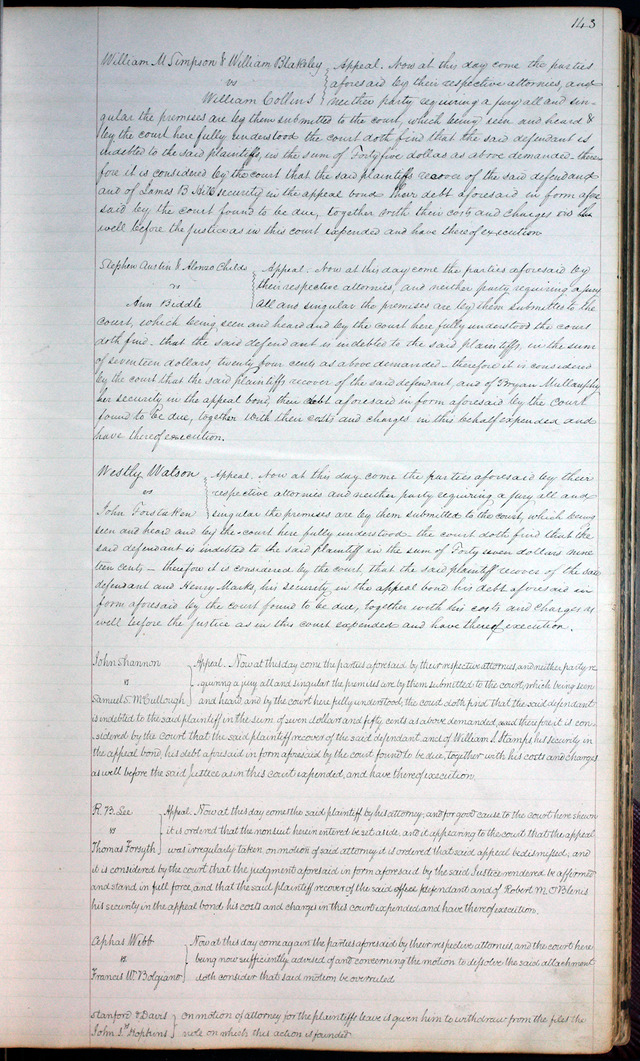 143
William M Simpson & William Blakeley } Appeal. Now at this day come the parties
vs } aforesaid by their respective attornies, and
William Collins } neither party requiring a jury all and sin-
gular the premises are by them submitted to the court, which being seen and heard &
by the court here fully understood the court doth find that the said defendant is
indebted to the said plaintiffs, in the sum of Forty five dollars as above demanded. there
fore it is considered by the court that the said plaintiffs recover of the said defendant
and of James B Hill security in the appeal bond their debt aforesaid in form afore
said by the court found to be due, together with their costs and charges as
well before the justice as in this court expended and have thereof execution
Stephen Austin & Alonzo Childs } Appeal. Now at this day come the parties aforesaid by
vs } their respective attornies, and neither party requiring a jury
Ann Biddle } all and singular the premises are by them submitted to the
court, which being seen and heard and by the court here fully understood the court
doth find that the said defendant is indebted to the said plaintiffs, in the sum
of seventeen dollars, twenty four cents as above demanded — therefore it is considered
by the court that the said plaintiffs recover of the said defendant, and of Bryan Mullanphy
her security in the appeal bond, their debt aforesaid in form aforesaid by the Court
found to be due, together with their costs and charges in this behalf expended and
have thereof execution.
Westly Watson } Appeal. Now at this day come the parties aforesaid by their
vs } respective attornies and neither party requiring a jury all and
John Forsluken } singular the premises are by them submitted to the court, which being
seen and heard and by the court here fully understood — the court doth find that the
said defendant is indebted to the said plaintiff in the sum of Forty seven dollars nine
teen cents — therefore it is considered by the court, that the said plaintiff recover of the said
defendant and Henry Marks his security in the appeal bond his debt aforesaid in
form aforesaid by the court found to be due, together with his costs and charges as
well before the justice as in this court expended and have thereof execution.
John Shannon } Appeal. Now at this day come the parties aforesaid by their respective attornies, and neither party re
vs } quiring a jury all and singular the premises are by them submitted to the court, which being seen
Samuel S. McCullough } and heard and by the court here fully understood, the court doth find that the said defendant
is indebted to the said plaintiff in the sum of seven dollars and fifty cents as above demanded, and therefore it is con-
sidered by the court that the said plaintiff recover of the said defendant and of William S. Stamps his security in
the appeal bond, his debt aforesaid in form aforesaid by the court found to be due, together with his costs and charges
as well before the said Justice as in this court expended, and have thereof execution.
R. B. Lee } Appeal. Now at this day comes the said plaintiff by his attorney, and for good cause to the court here shewn
vs } it is ordered that the nonsuit herein entered be set aside. and it appearing to the court that the appeal
Thomas Forsyth } was irregularly taken on motion of said attorney it is ordered that said appeal be dismissed, and
it is considered by the court that the judgment aforesaid in form aforesaid by the said Justice rendered be affirmed
and stand in full force, and that the said plaintiff recover of the said defendant and of Robert M. O'Blenis
his security in the appeal bond his costs and charges in this court expended and have thereof execution.
Aphas Webb } Now at this day come again the parties aforesaid by their respective attornies, and the court here
vs } being now sufficiently advised of and concerning the motion to dissolve the said attachment
Francis W. Bolgiano } doth consider that said motion be overruled
Stanford & Davis } on motion of attorney for the plaintiffs leave is given him to withdraw from the files the
John L. Hopkins } note on which this action is founded